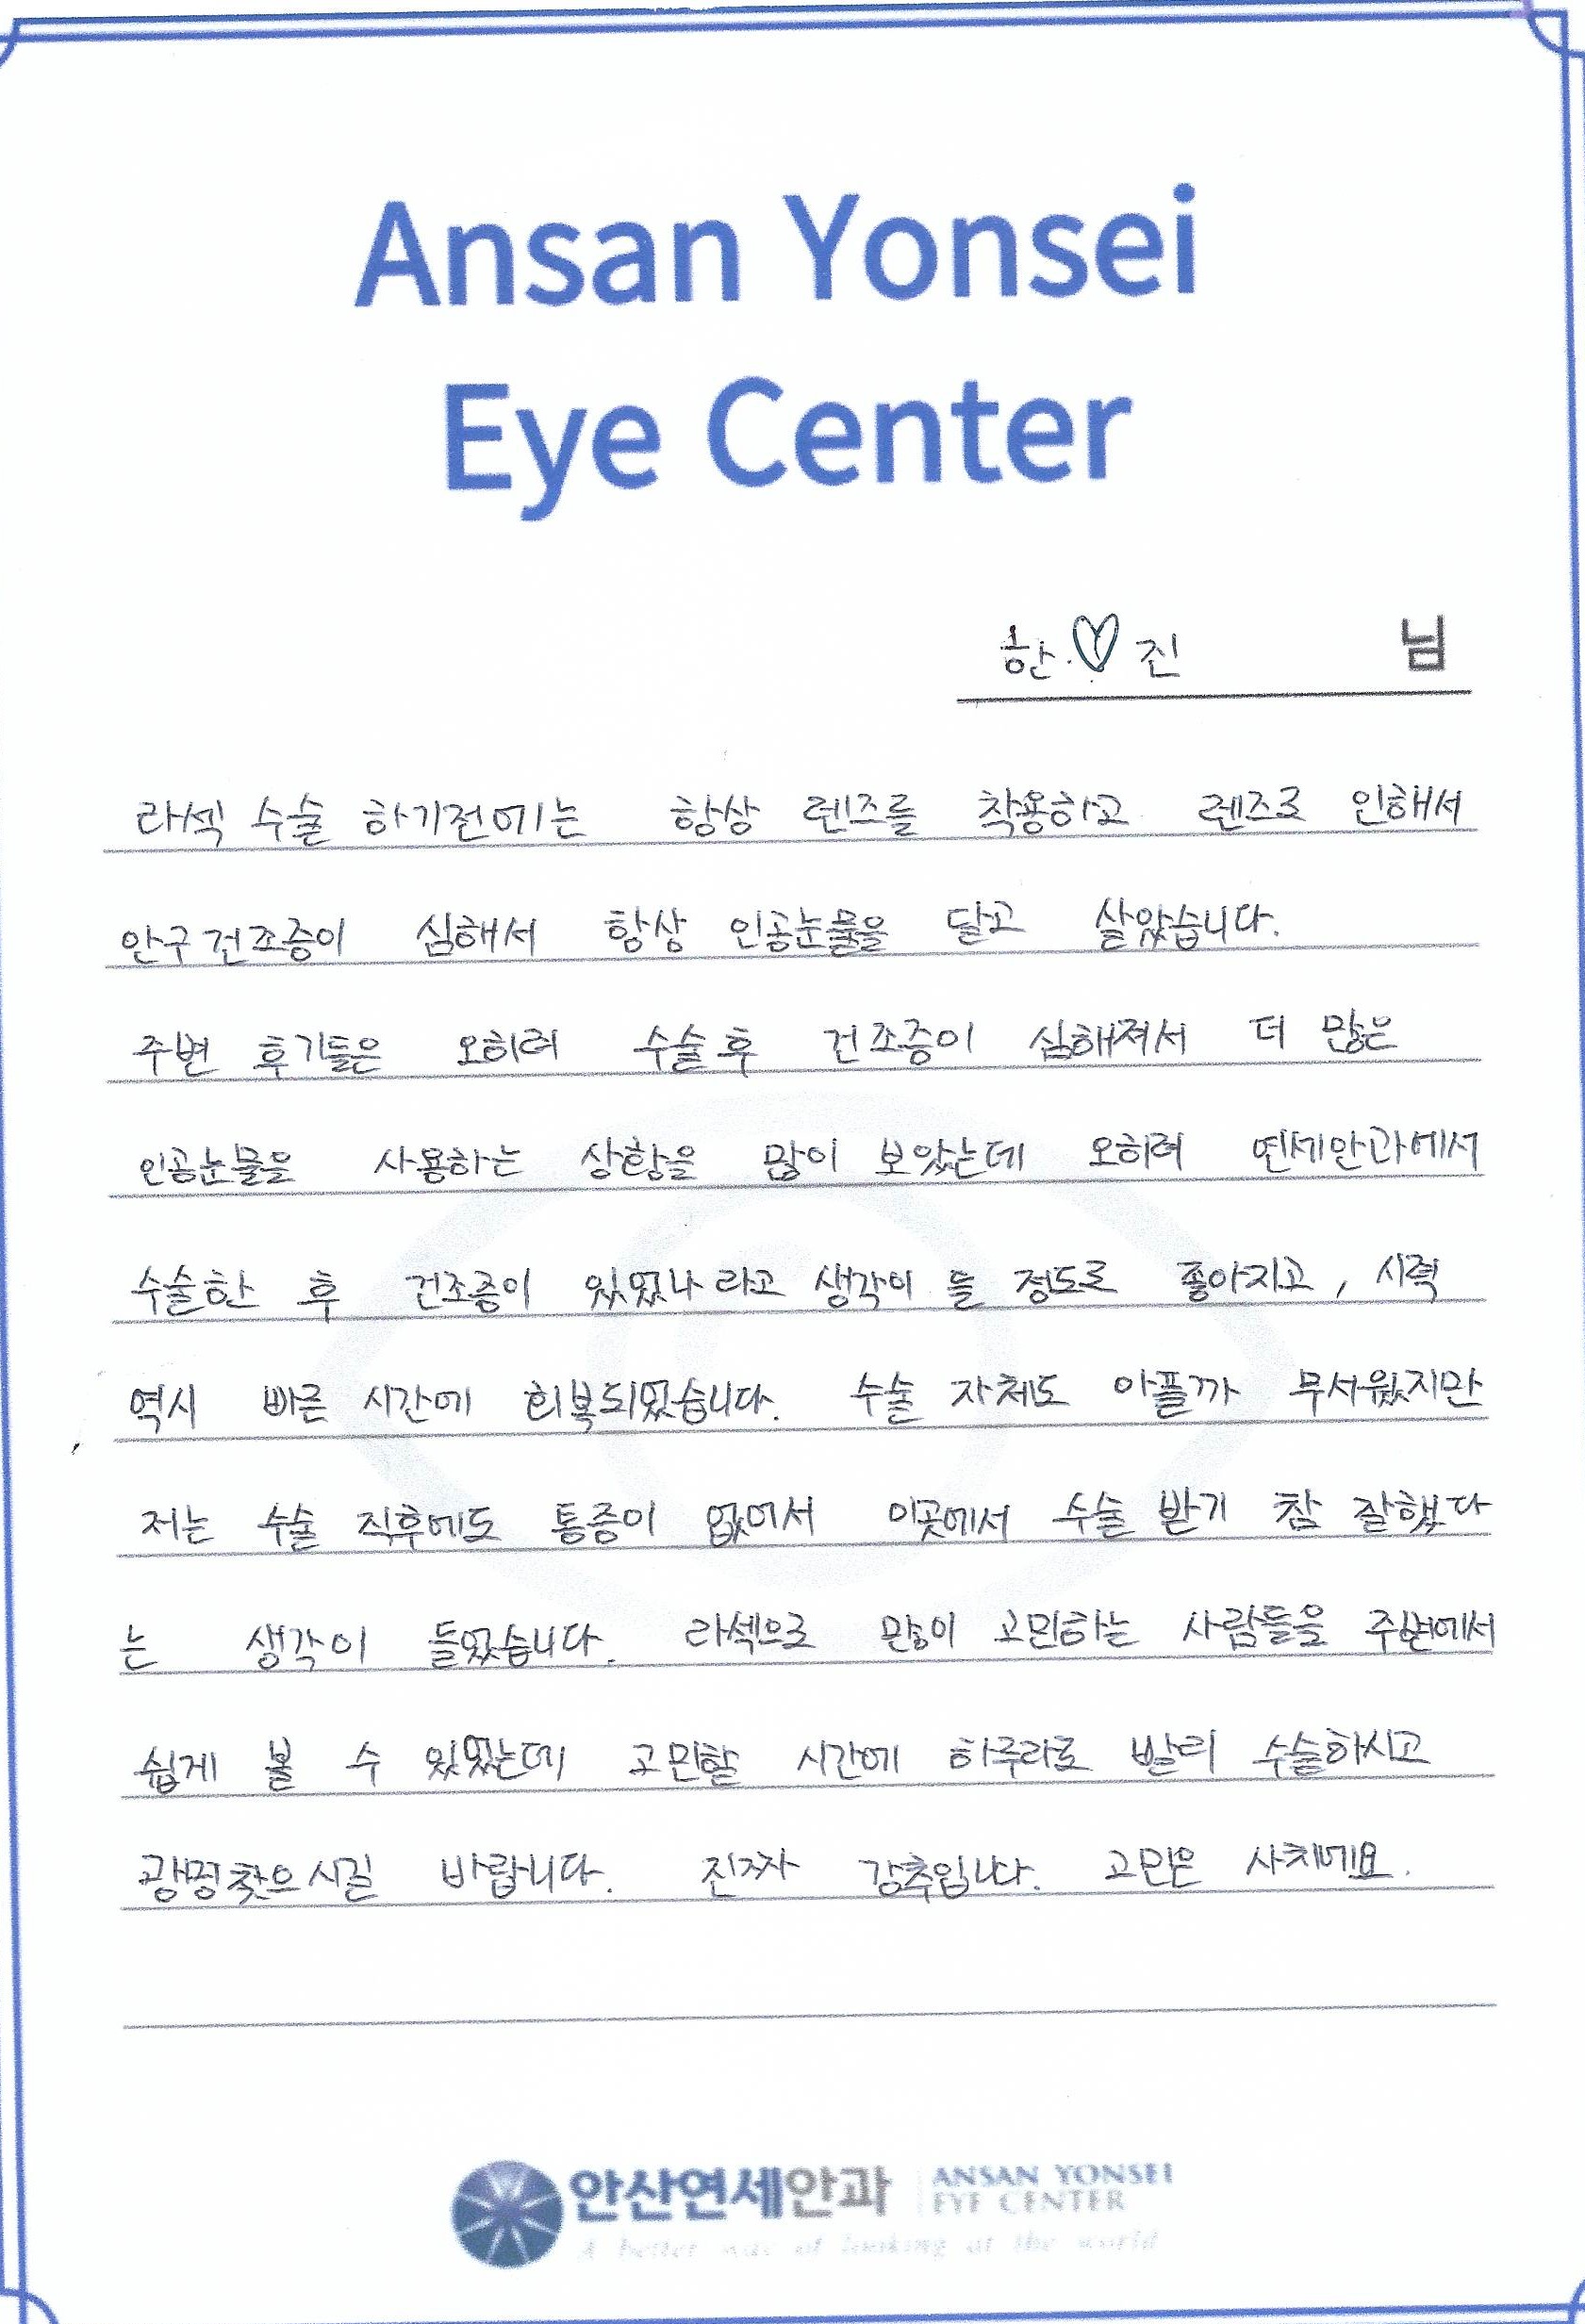 Ansan Yonsei
Eye Center
한♡진 님
라섹 수술 하기전에는 항상 렌즈를 착용하고 렌즈로 인해서
안구건조증이 심해서 항상 인공눈물을 달고 살았습니다.
주변 후기들은 오히려 수술후 건조증이 심해져서 더 많은
인공눈물을 사용하는 상황을 많이 보았는데 오히려 연세안과에서
수술한 후 건조증이 있었나 라고 생각이 들 정도로 좋아지고, 시력
역시 빠른 시간에 회복되었습니다. 수술 자체도 아플까 무서웠지만
저는 수술 직후에도 통증이 없어서 이곳에서 수술 받기 참 잘했다
는 생각이 들었습니다. 라섹으로 많이 고민하는 사람들을 주변에서
쉽게 볼 수 있었는데 고민할 시간에 하루라로 빨리 수술하시고
광명찾으시길 바랍니다. 진짜 강추입니다. 고민은 사치에요.
안산연세안과 ANSAN YONSEI
EYE CENTER
A better way of looking at the world